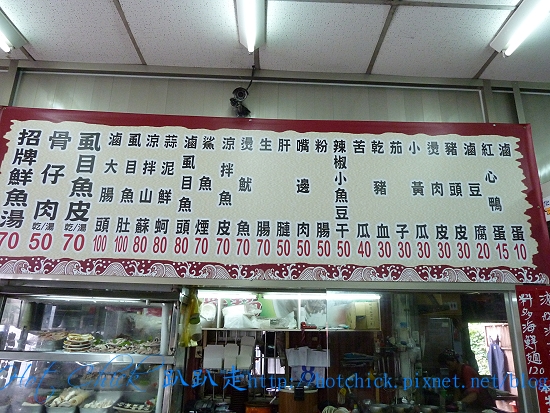 招牌鮮魚湯 70
骨仔肉 乾/湯 50
虱目魚皮 乾/湯 70
滷大腸頭 100
虱目魚肚 100
涼拌山蘇 80
蒜泥鮮蚵 80
滷虱目魚頭 80
鯊魚煙 80
涼拌魚皮 80
燙魷魚 70
生腸 70
肝腱 50
嘴邊肉 50
粉腸 50
辣椒小魚豆干 50
苦瓜 40
乾豬血 40
茄子 40
小黃瓜 40
燙肉皮 30
豬頭皮 30
滷豆腐 20
紅心鴨蛋 15
滷蛋 10
料多海鮮麵 120
Hot Chick 趴趴走 http://hotchick.pixnet.net/blog